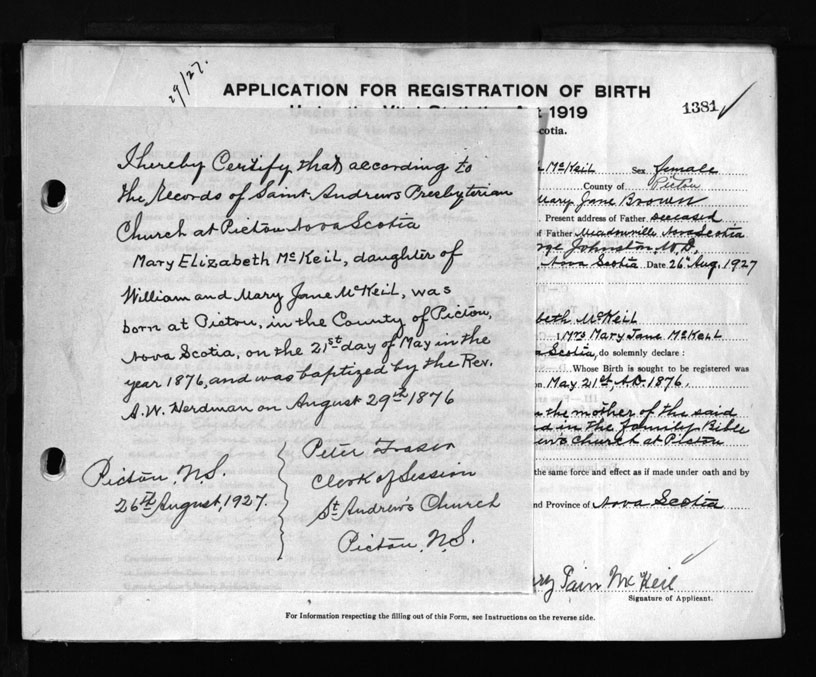 29/27.
APPLICATION FOR REGISTRATION OF BIRTH
1919
1381
I hereby Certify that according to
the Records of Saint Andrews Presbyterian
Church at Pictou Nova Scotia
Mary Elizabeth McKeil, daughter of
William and Mary Jane McKeil, was
born at Pictou, in the County of Pictou,
Nova Scotia, on the 21st day of May in the
year 1876, and was baptized by the Rev.
A.W. Herdman on August 29th 1876
Pictou, N.S.
26th August, 1927.
Peter Fraser
Clerk of Session
St Andrew's Church
Pictou, N.S.
cotia.
McKeil Sex female
County of Pictou
Mary Jane Brown
Present address of Father deceased
of Father Meadowville Nova Scotia
rge Johnston, M.D,
Nova Scotia Date 26th Aug. 1927
beth McKeil
Mrs Mary Jane McKeil
a Scotia, do solemnly declare :
Whose Birth is sought to be registered was
on May 21st, AD. 1876.
the mother of the said
d in the family Bible
ew's Church at Pictou
the same force and effect as if made under oath and by
nd Province of Nova Scotia
ary Jain Mc Keil
Signature of Applicant.
For Information respecting the filling out of this Form, see Instructions on the reverse side.